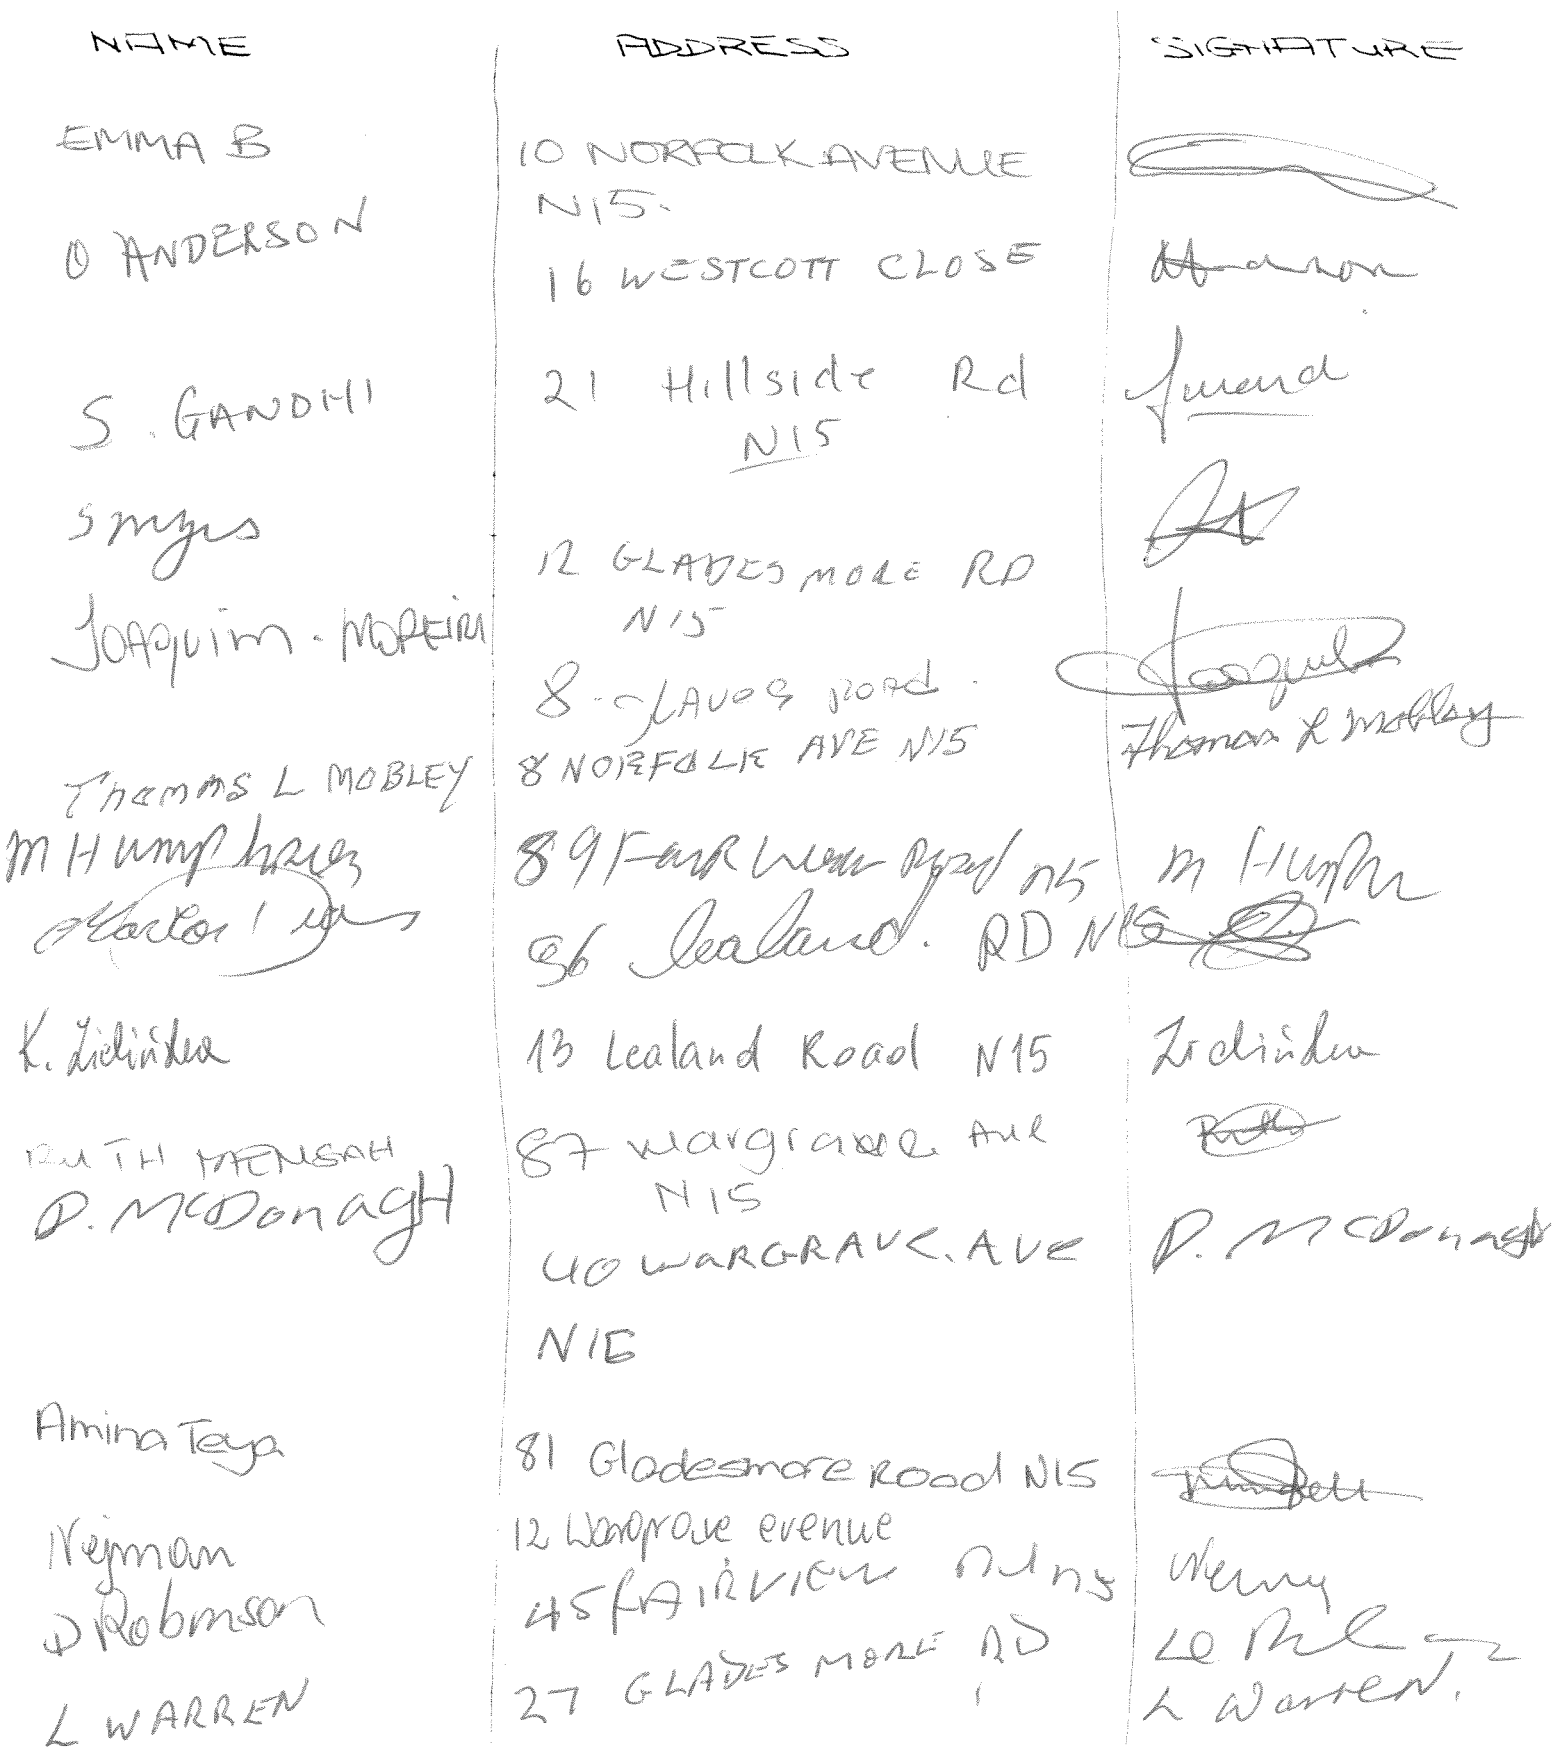 NAME ADDRESS SIGNATURE
EMMA B 10 NORFOLK AVENUE
N15.
O ANDERSON 16 WESTCOTT CLOSE
S. GANDHI 21 Hillside Rd
N15
S myrs
12 GLADESMORE RD
N15
JOAQUIM - MOREIRA
8 - ROAD.
THOMAS L MOBLEY 8 NORFOLK AVE N15 Thomas L Mobley
M Humphries 89 Road N15 M Humphr
96 Lealand. RD N15
K. 13 Lealand Road N15
RUTH MENSAH 87 Wargrave Ave Ruth
N15
D. McDonagH 40 WARGRAVE. AVE D. McDonagh
N15
Amina Teya 81 Gladesmore Road N15
Nejman 12 Wargrave evenue
D Robinson 45 FAIRVIEW Rd N15
L WARREN 27 GLADESMORE RD L WarreN.